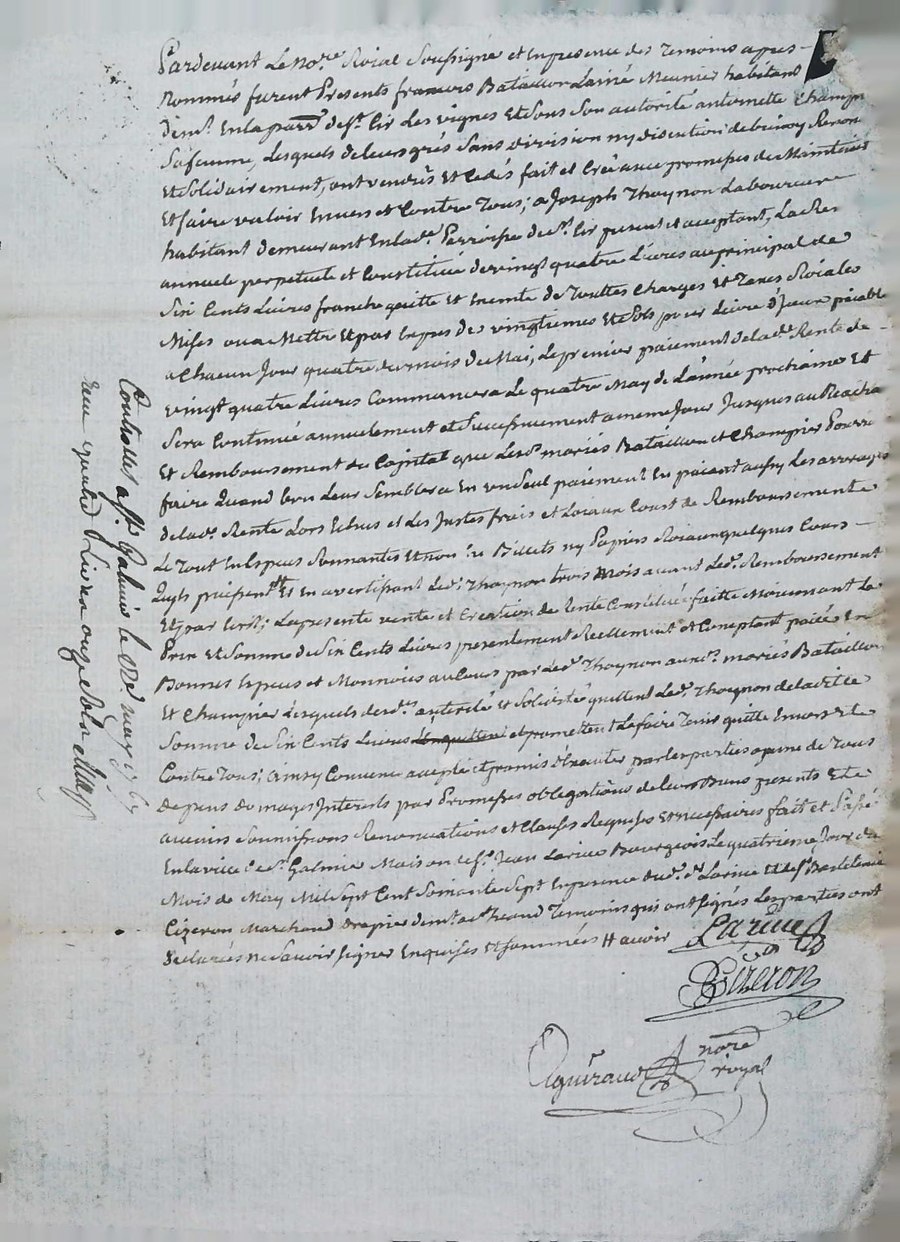 Pardevant Le no.re Roial Soussigné et en presence des temoins apres
Nommés furent Presents francois Bataillon Lainé Meunier habitant
dem.t En la parr.e de S.t Cir Les vignes Et Sous Son autorité antoinette Champ
Sa femme, Lesquels de leurs grés Sans division ny discution de biens, Renon
Et Solidairement, ont vendus Et Cedés fait et Crée avec promesses de Maintenir
Et faire valoir Envers et Contre Tous; a Joseph Thoynon Laboureur
habitant demeurant En lad.e Parroisse de S.t Cir present et acceptant, La Ren
annuel perpetuele et Constituée de vingt quatre Livres au principal de
Six Cents Livres franche quitte et exemte de Touttes Charges et Taxes Roiales
Mises ou a Mettre Et par exprés des vingtiemes Et Sols pour Livre d'Iceux paiable
a Chacun Jour quatre du mois de Mai, Le premier paiement de la d.e Rente de
vingt quatre Livres Commencera Le quatre May de L'année prochaine Et
Sera Continué annuelement et Successivement a meme Jour Jusques au Reacha
Et Remboursement du Capital que Lesd.s mariés Bataillon et Champier Pourro
faire Quand bon Leur Semblera En un Seul paiement En paiant aussy Les arrerages
de lad.e Rente Lors Echus et Les Justes frais et Loiaux Coust de Remboursement
Le Tout En Especes Sonnantes Et non En Billets ny Papiers Roiaux quelques Cours
Quils puissent Et en avertissant Led.t Thoynon trois Mois avant Led.t Remboursement
Et par Ecrit; La presente vente et Creation de Rente Constituée faitte Moiennant Le
Prix Et Somme de Six Cents Livres presentement Reellement et Comptant paiée En
Bonnes Especes et Monnoies au Cours par Led.t Thoynon auxd.s mariés Bataillon
Et Champier Lesquels de lesd.s autorité et Solidité quittent Led.t Thoynon de la ditte
Somme de Six Cents Livres et promettent Le faire Tenir quitte Envers Et
Contre Tous; ainsy Convenu accepté et promis d'Executer par les parties a peine de Tous
depens dommages Interets par Promesses obligations de leurs Biens presents Et
avenirs Soumissions Renonciations et Clauses Requises Et necessaires fait et Passé
En la ville de S.t Galmier Maison de S.r Jean Larive Bourgeois Le quatrieme Jour du
Mois de May Mil Sept Cent Soixante Sept En presence dud.t S.r Larive et de S.r Bartelemie
Cizeron Marchand drapier dem.t aud.t Temoins qui ont Signés Les parties ont
declarées ne Savoir Signer Enquises Et Sommées
Larive
Cizeron
no.re
royal
Controllé a S.t Galmier le may 1767
Reçu quatre Livres onze Sols